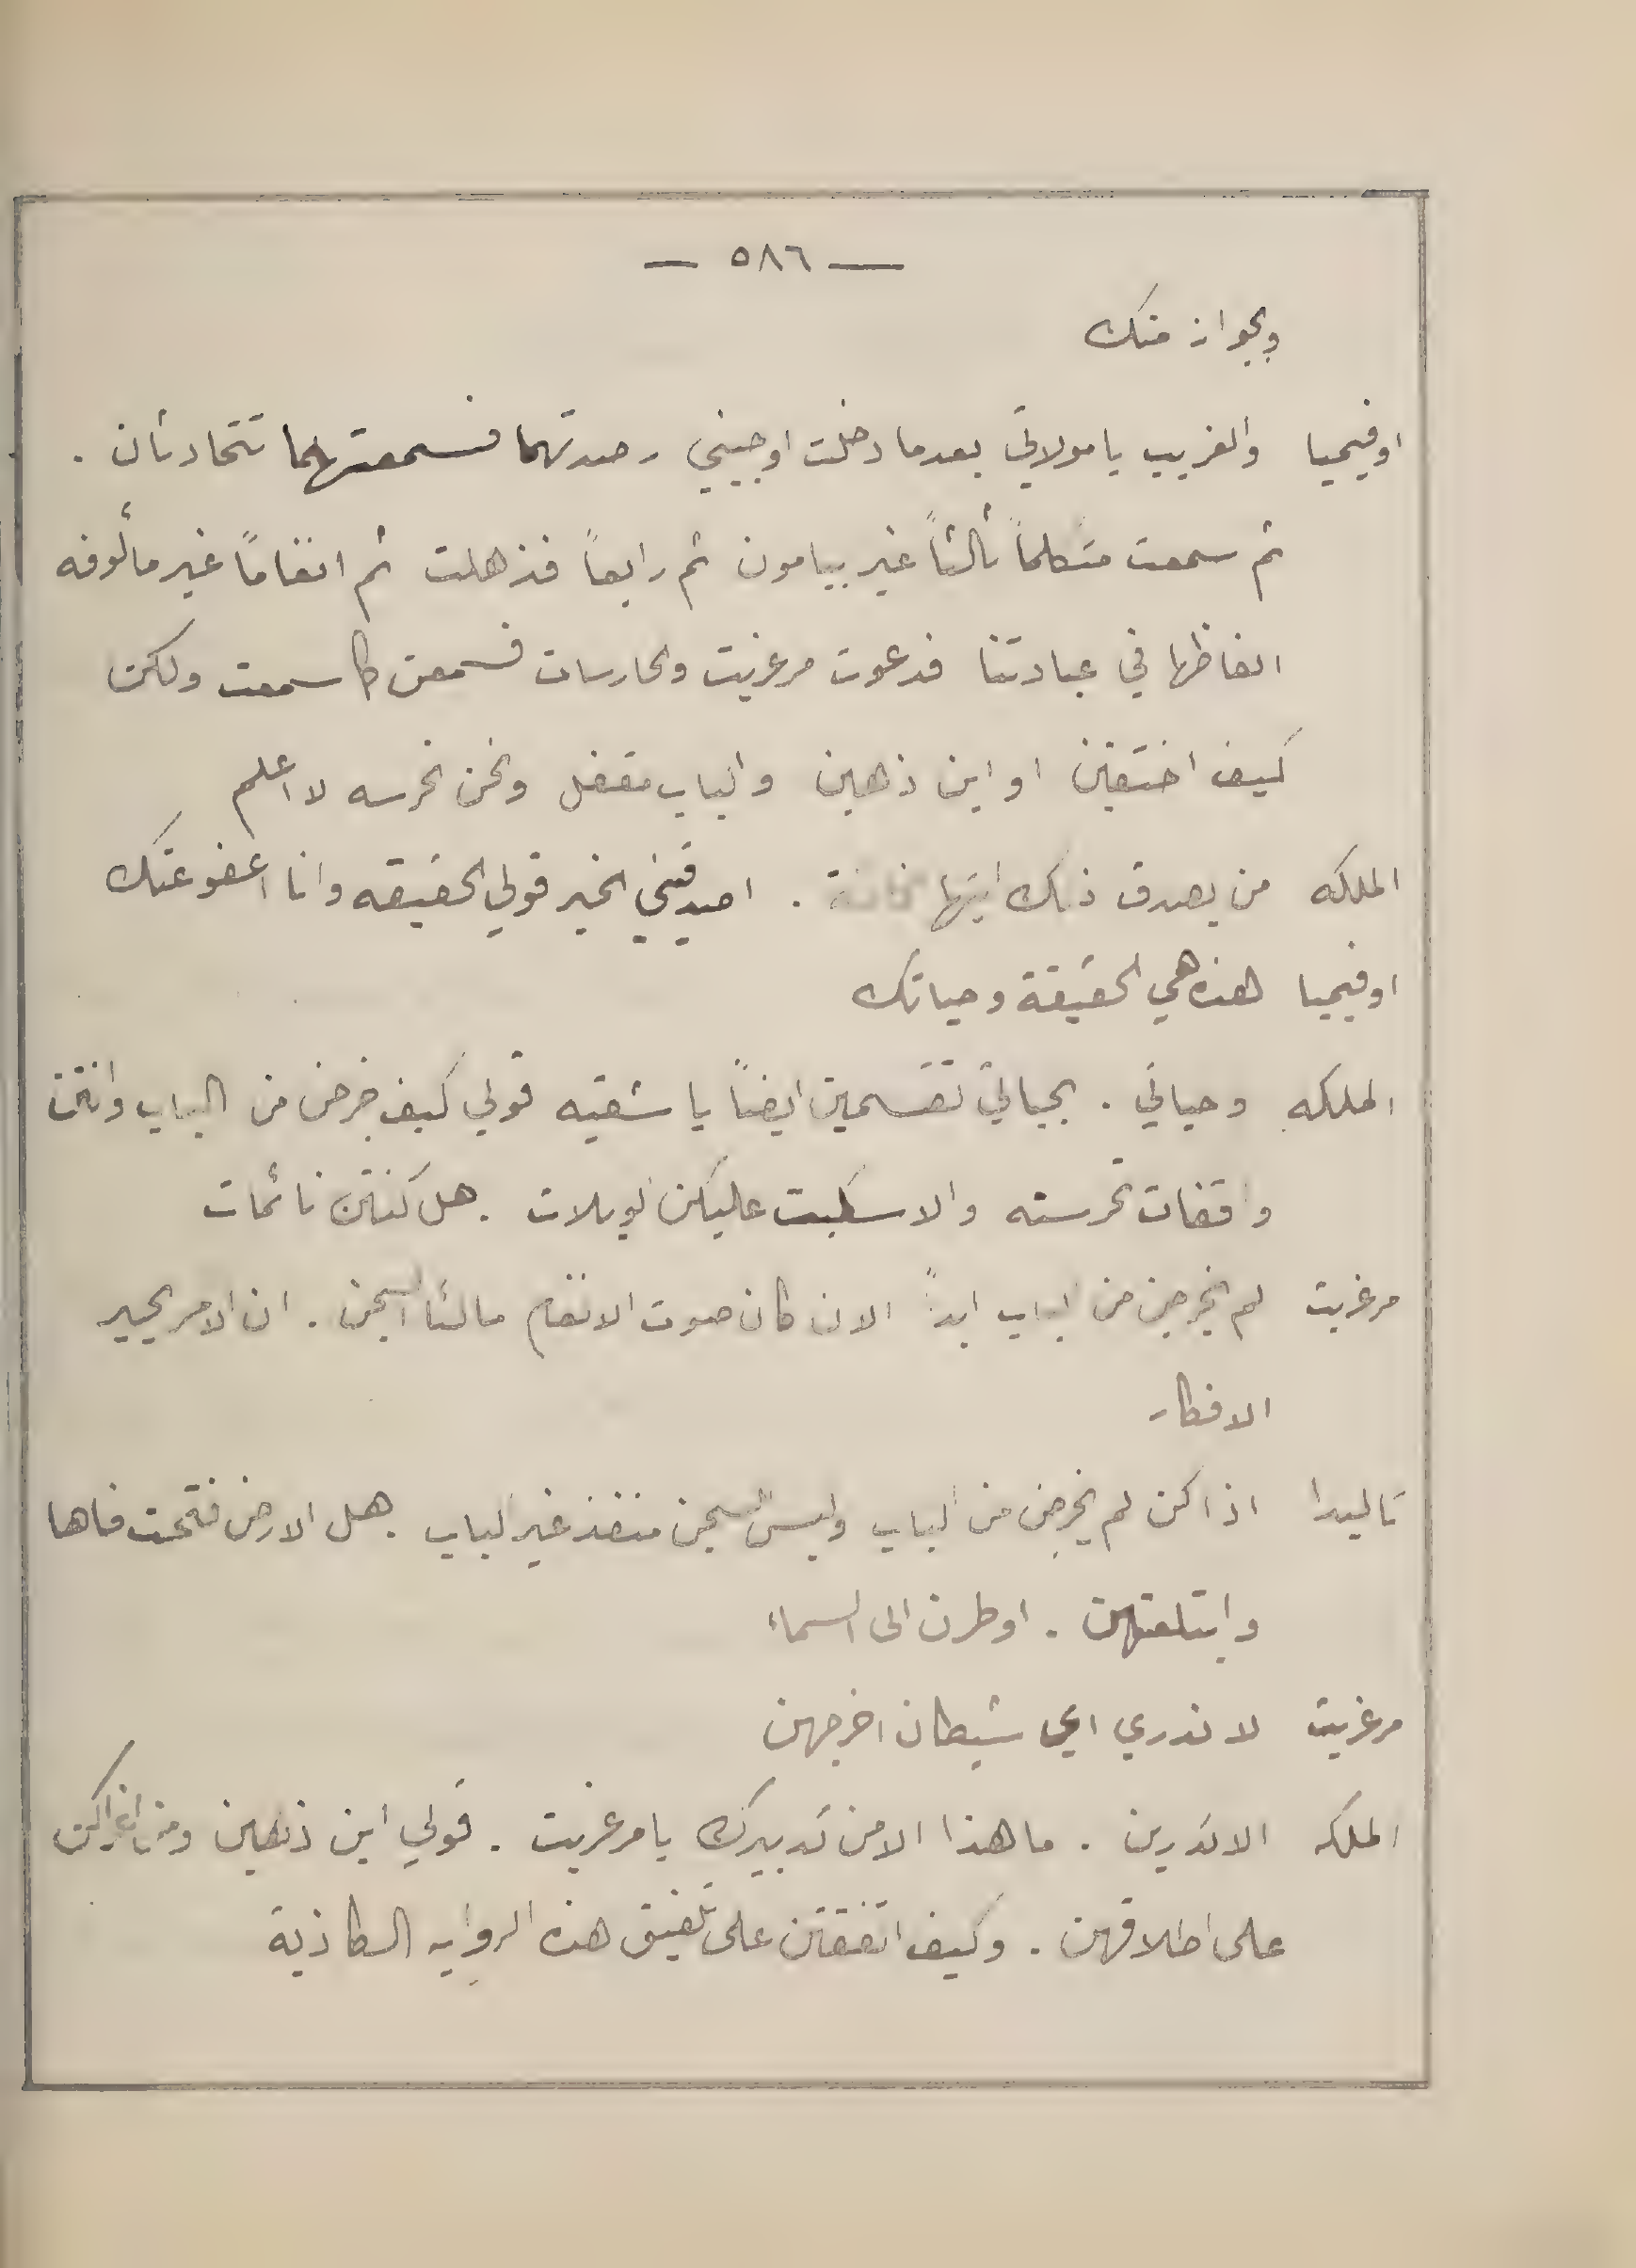 — ٥٨٦ —
وبجواز منك
اوفيميا والغريب يا مولاتي بعدما دخلت اوجيني رصدتهما فسمعتهما تتحادثان .
ثم سمعت متكلماً ثالثاً غير بيامون ثم رابعاً فذهلت ثم انغاماً غير مألوفه
الفاظها في عبادتنا فدعوت مرغريت والحارسات فسمعن كما سمعت ولكن
كيف اختفين او اين ذهبن والباب مقفل ونحن نحرسه لا اعلم
الملكه من يصدق ذلك ايتها الخائنة . اصدقيني الخبر قولي الحقيقه وانا اعفو عنك
اوفيميا هذه هي الحقيقة وحياتك
الملكه وحياتي . بحياتي تقسمين ايضاً يا شقيه قولي كيف خرجن من الباب وانتن
واقفات تحرسنه والا سكبت عليكن الويلات . هل كنتن نائمات
مرغريت لم يخرجن من الباب ابداً الان كان صوت الانغام مالئا السجن . ان الامر يحير
الافكار
تاليدا اذا كن لم يخرجن من الباب وليس للسجن منفذ غير الباب . هل الارض فتحت فاها
وابتلعتهن . او طرن الى السماء
مرغريت لا ندري اي شيطان اخرجهن
الملكه الا تدرين . ما هذا الا من تدبيرك يا مرغريت . قولي اين ذهبن ومن اغراكن
على اطلاقهن . وكيف اتفقتن على تلفيق هذه الروايه الكاذبة